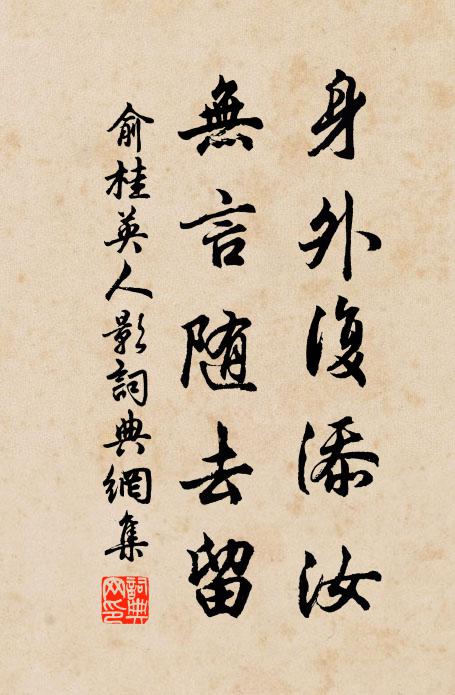 身外復添汝
無言随去留
俞桂英人影詞典網集
詞典網印